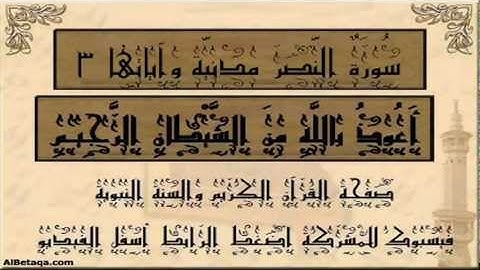 سُورَةُ النَّصر مدنيَّة وآياتها ٣
أَعُوذُ بِاللَّهِ مِنَ الشَّيْطَانِ الرَّجِيمِ
صفحة القرآن الكريم والسنة النبوية
فيسبوك للمشركة اضغط الرابط أسفل الفيديو
AlBetaqa.com